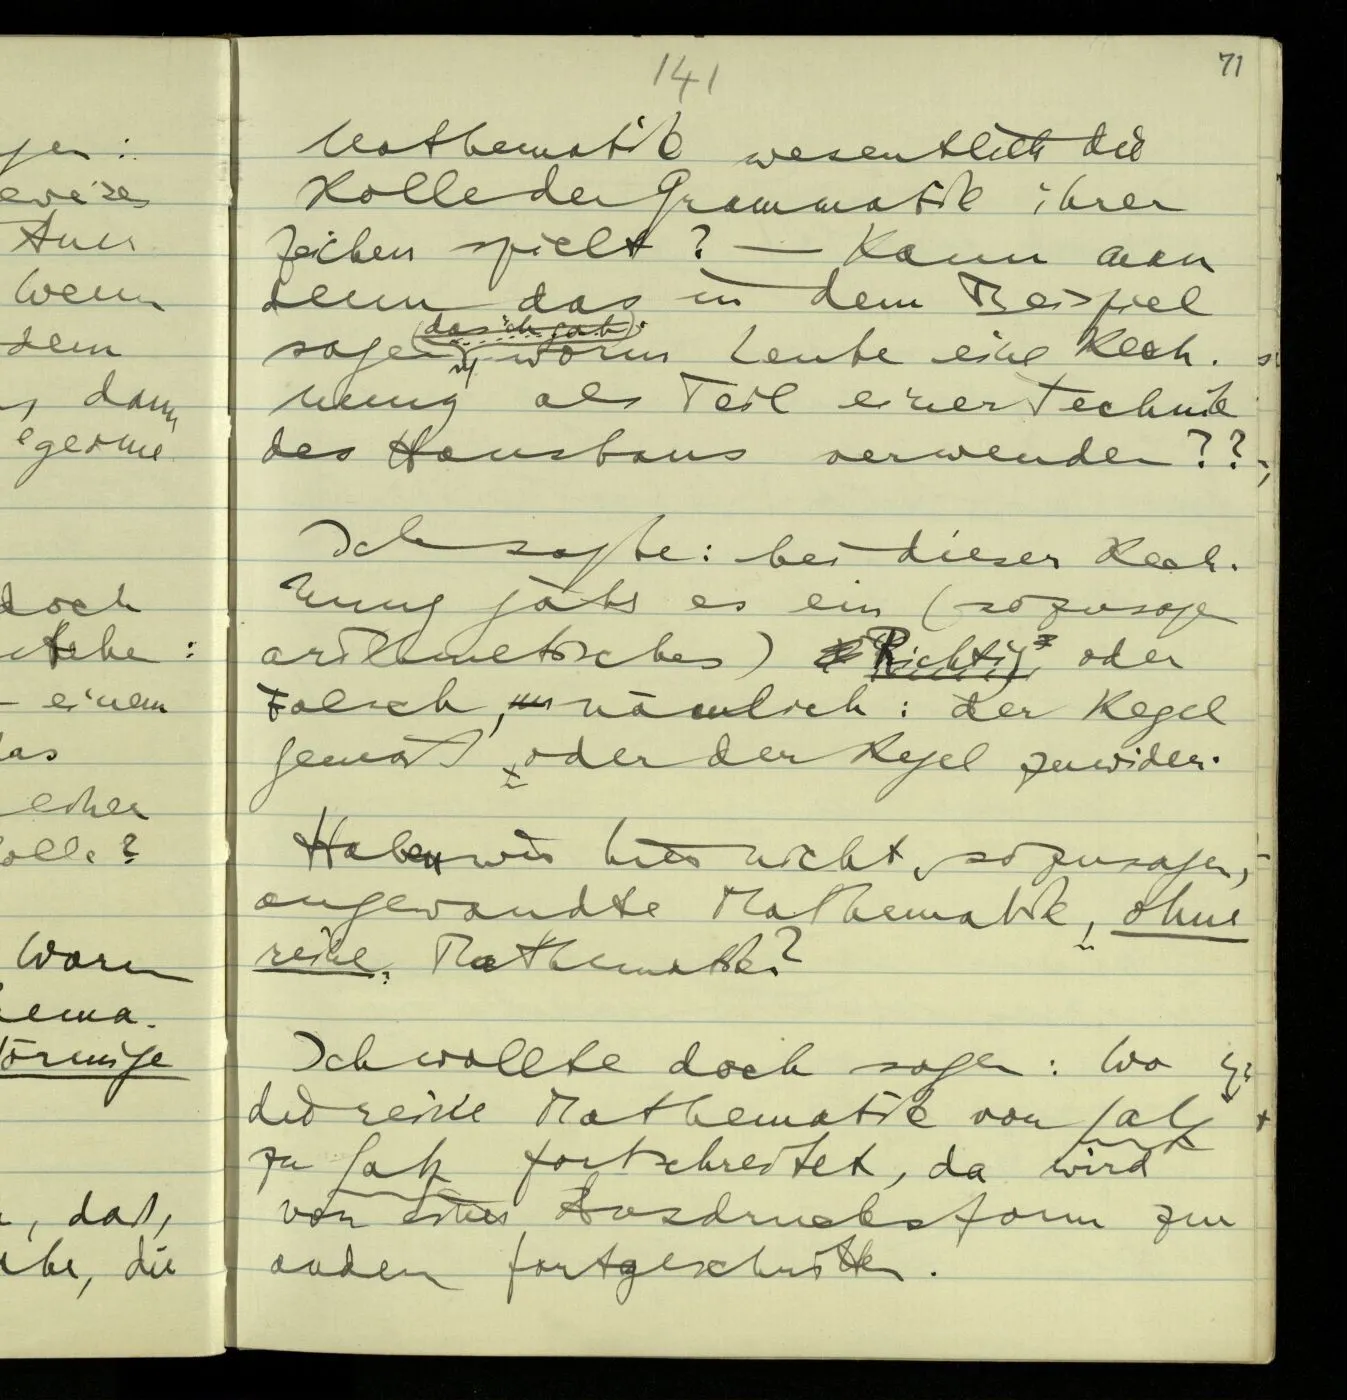 141
71
Mathematik wesentlich die
Rolle der Grammatik ihrer
Zeichen spielt? — Kann man
denn das in dem Beispiel
(das ich gab)
sagen, worin Leute eine Rech-
nung als Teil einer Technik
des Hausbaus verwenden??
Ich sagte: bei dieser Rech-
nung gäbe es ein (sozusagen
arithmetisches) Richtig oder
Falsch, nämlich: der Regel
gemäß, oder der Regel zuwider.
Haben wir hier nicht, sozusagen,
angewandte Mathematik, ohne
reine Mathematik?
Ich wollte doch sagen: Wo
die reine Mathematik von Satz
zu Satz fortschreitet, da wird
von einer Ausdrucksform zur
andern fortgeschritten.
gen:
eweises
Wenn
dem
dann
doch
stehe:
– einem
das
einer
Rolle?
Worin
hema-
förmige
, daß,
be, die